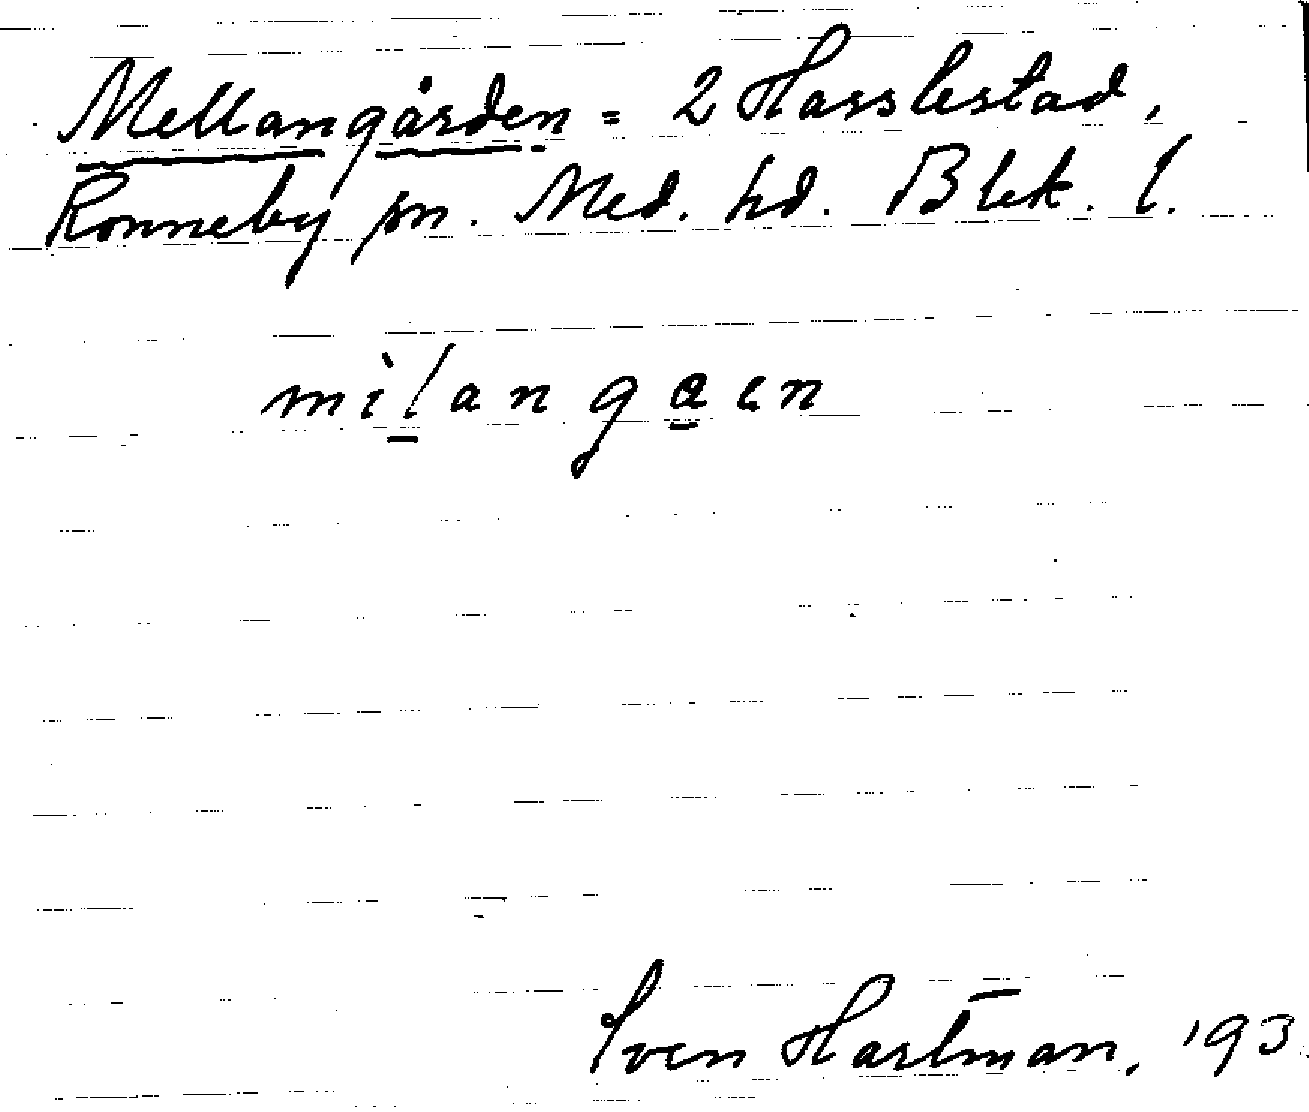 Mellangården = 2 Hasslestad,
Ronneby sn. Med. hd. Blek. l.
milangaen
Sven Hartman, 193